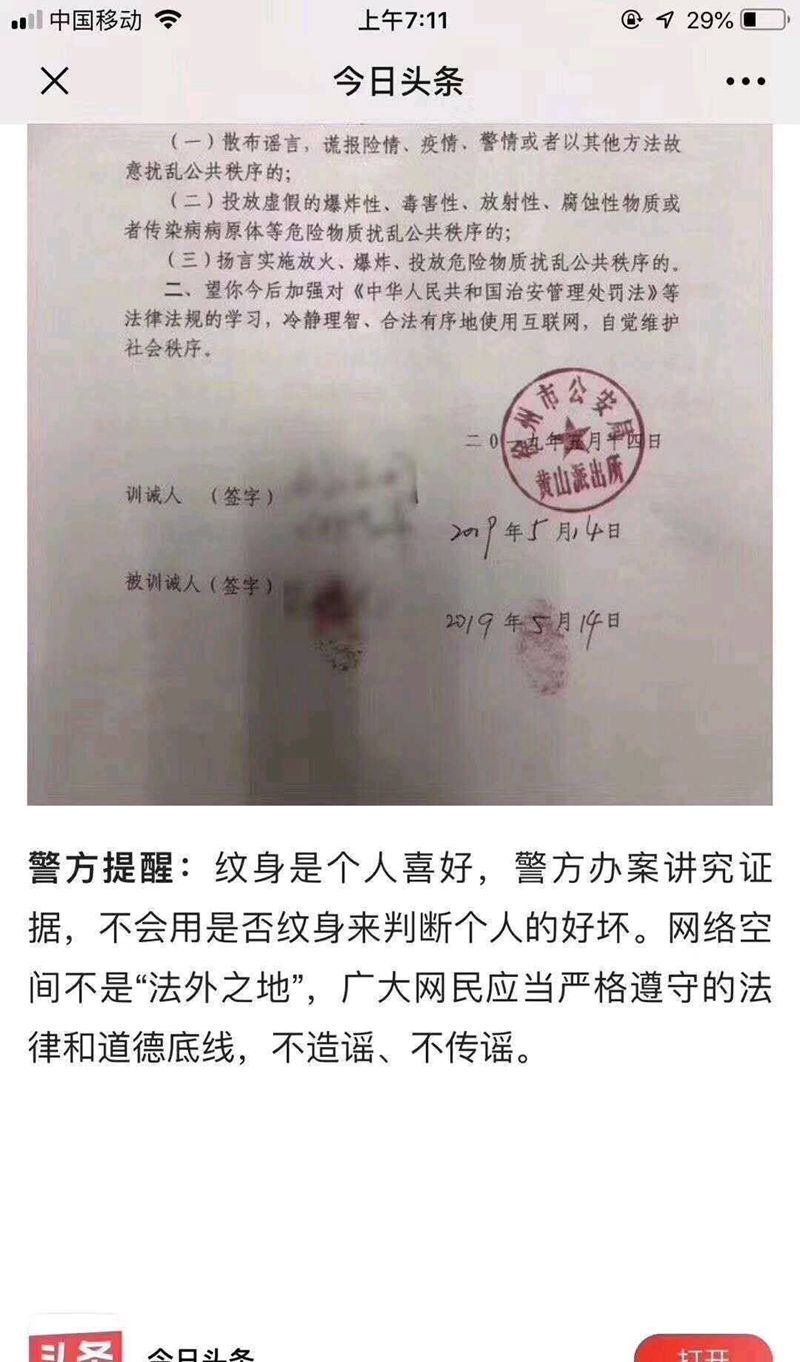 中国移动
上午7:11
29%
今日头条
（一）散布谣言，谎报险情、疫情、警情或者以其他方法故
意扰乱公共秩序的；
（二）投放虚假的爆炸性、毒害性、放射性、腐蚀性物质或
者传染病病原体等危险物质扰乱公共秩序的；
（三）扬言实施放火、爆炸、投放危险物质扰乱公共秩序的。
二、望你今后加强对《中华人民共和国治安管理处罚法》等
法律法规的学习，冷静理智、合法有序地使用互联网，自觉维护
社会秩序。
州市公安局
黄山派出所
二0一九年五月十四日
训诫人 （签字）
2019年5月14日
被训诫人（签字）
2019年5月14日
警方提醒：纹身是个人喜好，警方办案讲究证
据，不会用是否纹身来判断个人的好坏。网络空
间不是“法外之地”，广大网民应当严格遵守的法
律和道德底线，不造谣、不传谣。
头条
今日头条
打开